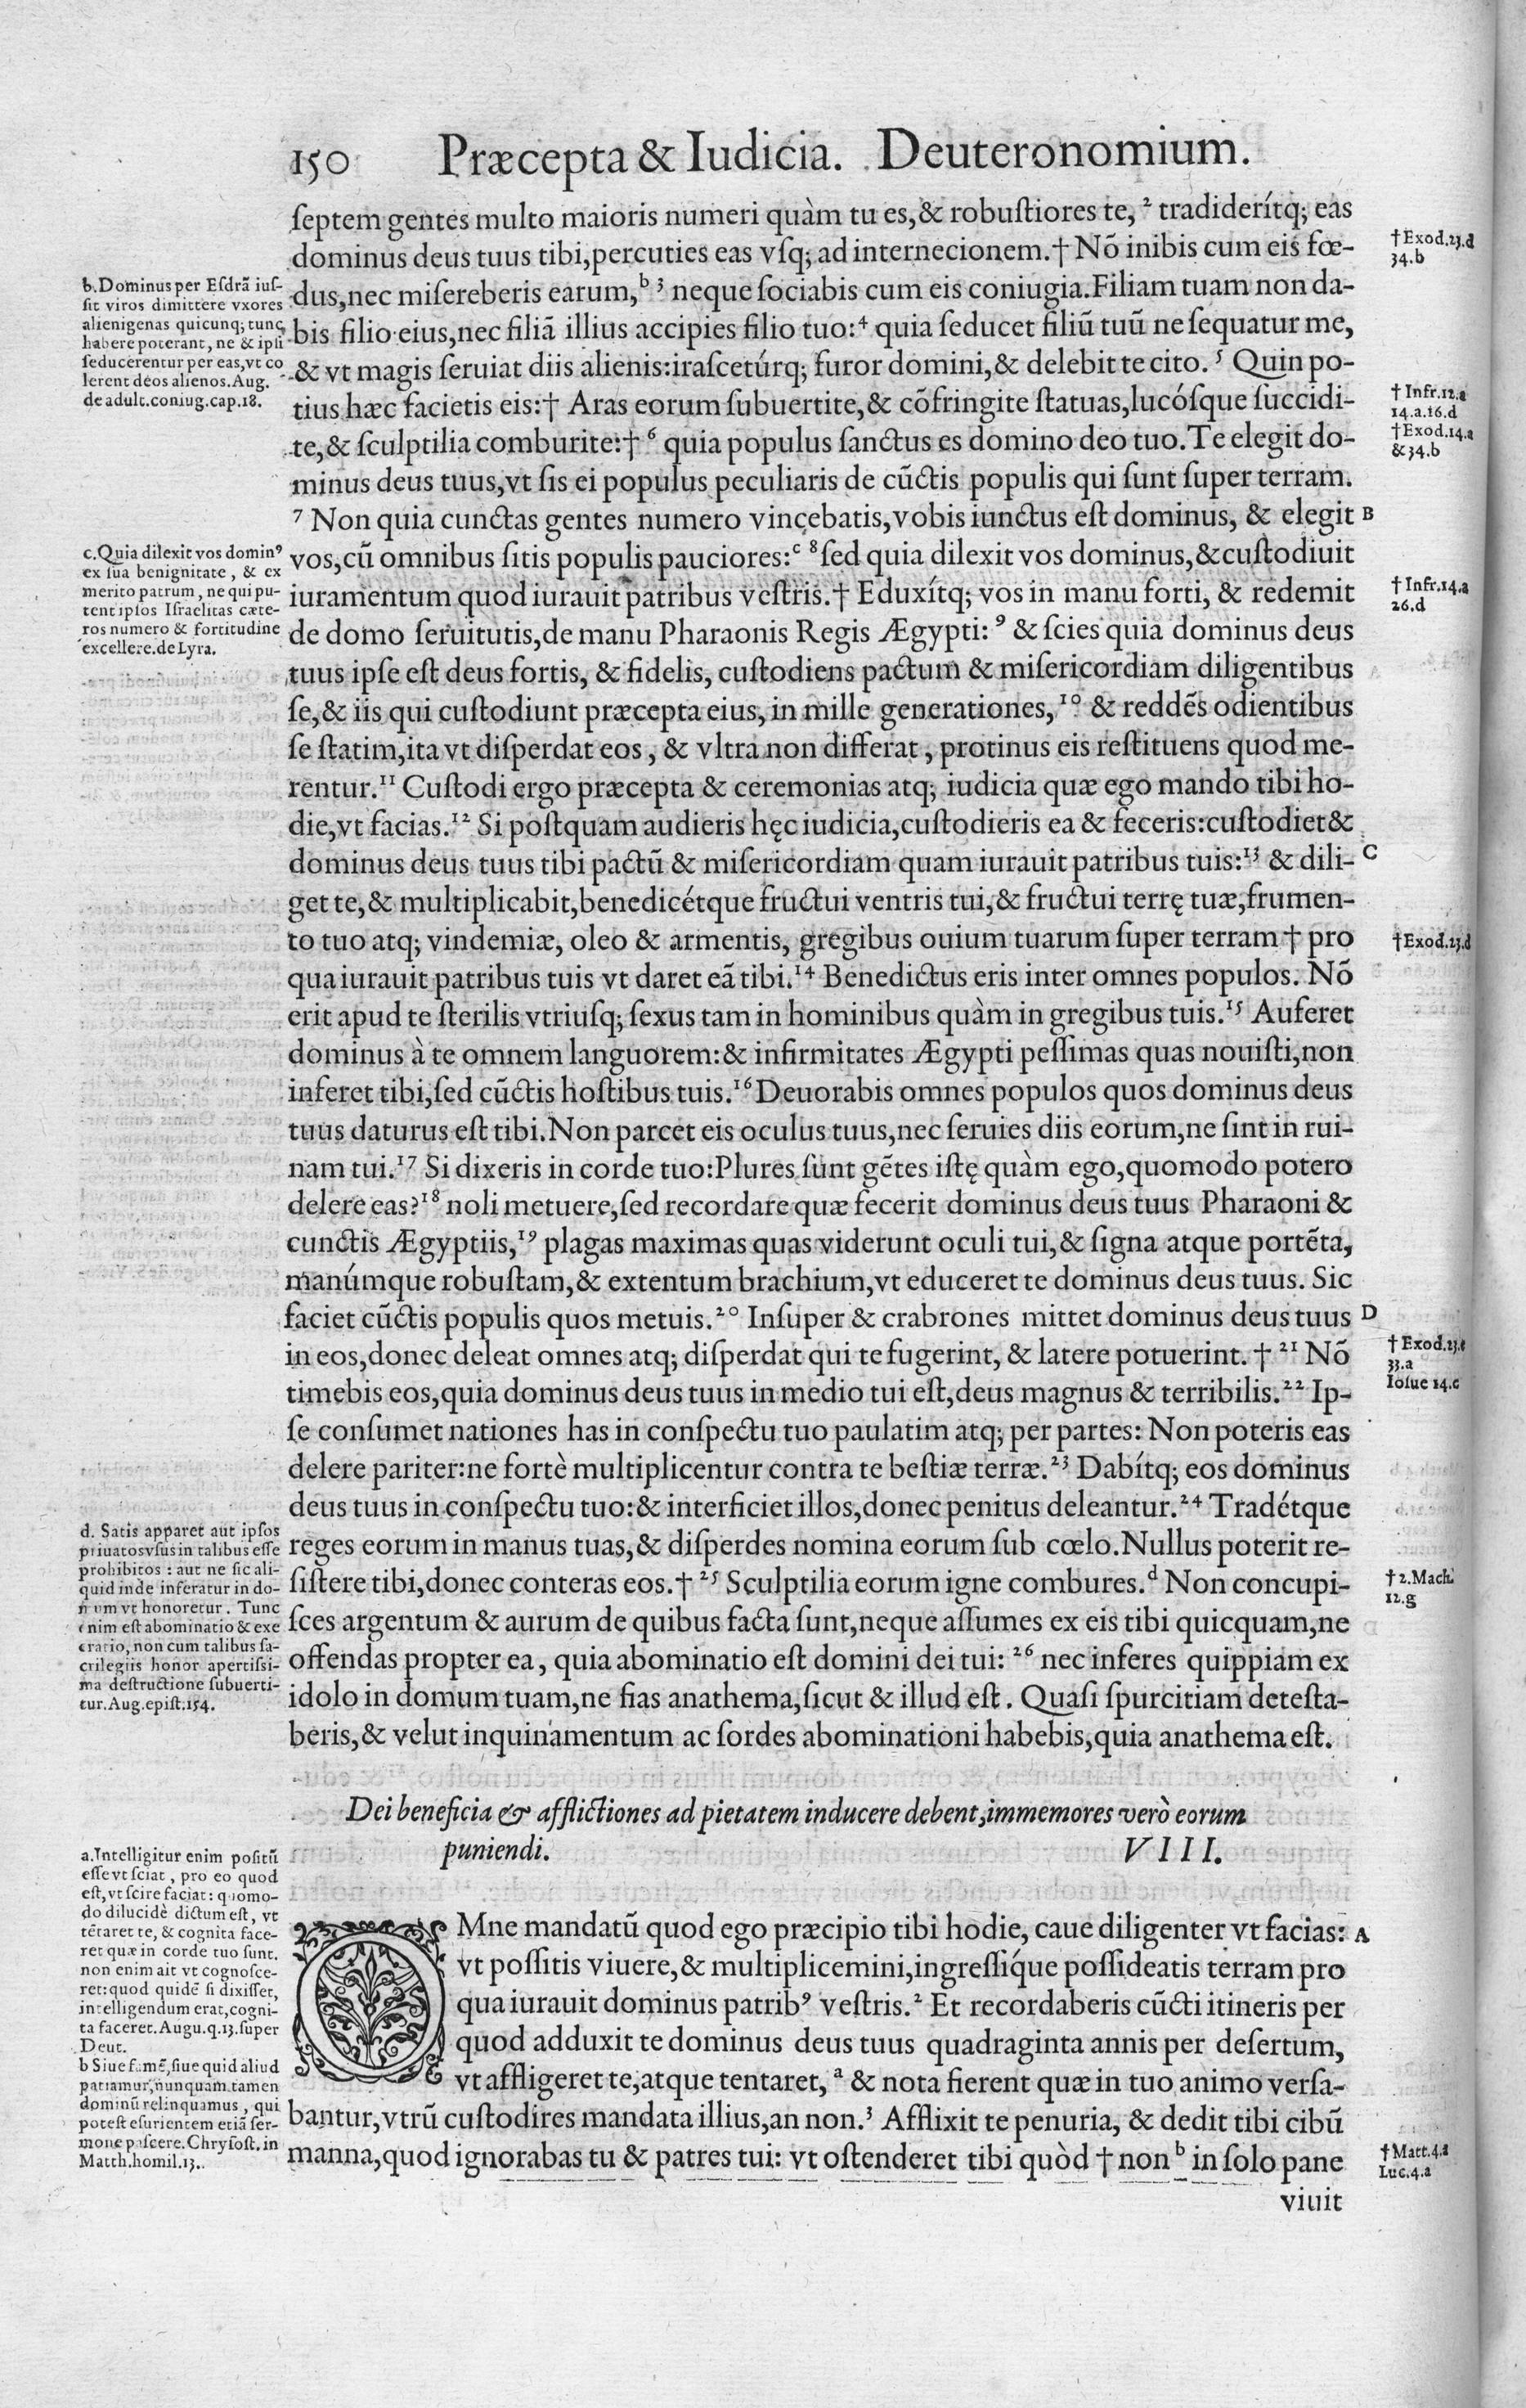 150 Præcepta & Iudicia. Deuteronomium.
septem gentes multo maioris numeri quàm tu es,& robustiores te, ² tradiderítq; eas
dominus deus tuus tibi,percuties eas vsq; ad internecionem.† Nõ inibis cum eis fœ-
dus,nec misereberis earum,ᵇ ³ neque sociabis cum eis coniugia.Filiam tuam non da-
bis filio eius,nec filiã illius accipies filio tuo:⁴ quia seducet filiũ tuũ ne sequatur me,
& vt magis seruiat diis alienis:irascetúrq; furor domini,& delebit te cito.⁵ Quin po-
tius hæc facietis eis:† Aras eorum subuertite,& cõfringite statuas,lucósque succidi-
te,& sculptilia comburite:† ⁶ quia populus sanctus es domino deo tuo.Te elegit do-
minus deus tuus,vt sis ei populus peculiaris de cũctis populis qui sunt super terram.
⁷ Non quia cunctas gentes numero vincebatis,vobis iunctus est dominus, & elegit B
vos,cũ omnibus sitis populis pauciores:ᶜ ⁸ sed quia dilexit vos dominus,&custodiuit
iuramentum quod iurauit patribus vestris.† Eduxítq; vos in manu forti, & redemit
de domo seruitutis,de manu Pharaonis Regis Ægypti: ⁹ & scies quia dominus deus
tuus ipse est deus fortis, & fidelis, custodiens pactum & misericordiam diligentibus
se,& iis qui custodiunt præcepta eius, in mille generationes,¹⁰ & reddẽs odientibus
se statim,ita vt disperdat eos , & vltra non differat , protinus eis restituens quod me-
rentur.¹¹ Custodi ergo præcepta & ceremonias atq; iudicia quæ ego mando tibi ho-
die,vt facias.¹² Si postquam audieris hęc iudicia,custodieris ea & feceris:custodiet&
dominus deus tuus tibi pactũ & misericordiam quam iurauit patribus tuis:¹³ & dili- C
get te,& multiplicabit,benedicétque fructui ventris tui,& fructui terrę tuæ,frumen-
to tuo atq; vindemiæ, oleo & armentis, gregibus ouium tuarum super terram † pro
qua iurauit patribus tuis vt daret eã tibi.¹⁴ Benedictus eris inter omnes populos. Nõ
erit apud te sterilis vtriusq; sexus tam in hominibus quàm in gregibus tuis.¹⁵ Auferet
dominus à te omnem languorem:& infirmitates Ægypti pessimas quas nouisti,non
inferet tibi,sed cũctis hostibus tuis.¹⁶ Deuorabis omnes populos quos dominus deus
tuus daturus est tibi.Non parcet eis oculus tuus,nec seruies diis eorum,ne sint in rui-
nam tui.¹⁷ Si dixeris in corde tuo:Plures sunt gẽtes istę quàm ego,quomodo potero
delere eas?¹⁸ noli metuere,sed recordare quæ fecerit dominus deus tuus Pharaoni &
cunctis Ægyptiis,¹⁹ plagas maximas quas viderunt oculi tui,& signa atque portẽta,
manúmque robustam,& extentum brachium,vt educeret te dominus deus tuus. Sic
faciet cũctis populis quos metuis.²⁰ Insuper & crabrones mittet dominus deus tuus D
in eos,donec deleat omnes atq; disperdat qui te fugerint, & latere potuerint. † ²¹ Nõ
timebis eos,quia dominus deus tuus in medio tui est,deus magnus & terribilis.²² Ip-
se consumet nationes has in conspectu tuo paulatim atq; per partes: Non poteris eas
delere pariter:ne fortè multiplicentur contra te bestiæ terræ.²³ Dabítq; eos dominus
deus tuus in conspectu tuo:& interficiet illos,donec penitus deleantur.²⁴ Tradétque
reges eorum in manus tuas,& disperdes nomina eorum sub cœlo.Nullus poterit re-
sistere tibi,donec conteras eos.† ²⁵ Sculptilia eorum igne combures.ᵈ Non concupi-
sces argentum & aurum de quibus facta sunt,neque assumes ex eis tibi quicquam,ne
offendas propter ea, quia abominatio est domini dei tui: ²⁶ nec inferes quippiam ex
idolo in domum tuam,ne fias anathema,sicut & illud est. Quasi spurcitiam detesta-
beris,& velut inquinamentum ac sordes abominationi habebis,quia anathema est.
Dei beneficia & afflictiones ad pietatem inducere debent,immemores verò eorum
puniendi. VIII.
OMne mandatũ quod ego præcipio tibi hodie, caue diligenter vt facias: A
vt possitis viuere,& multiplicemini,ingressíque possideatis terram pro
qua iurauit dominus patribꝰ vestris.² Et recordaberis cũcti itineris per
quod adduxit te dominus deus tuus quadraginta annis per desertum,
vt affligeret te,atque tentaret, ᵃ & nota fierent quæ in tuo animo versa-
bantur,vtrũ custodires mandata illius,an non.³ Afflixit te penuria, & dedit tibi cibũ
manna,quod ignorabas tu & patres tui: vt ostenderet tibi quòd † non ᵇ in solo pane
viuit
b.Dominus per Esdrã ius-
sit viros dimittere vxores
alienigenas quicunq; tunc
habere poterant, ne & ipsi
seducerentur per eas,vt co
lerent deos alienos. Aug.
de adult.coniug.cap.18.
c.Quia dilexit vos dominꝰ
ex sua benignitate , & ex
merito patrum , ne qui pu-
tent ipsos Israelitas cæte-
ros numero & fortitudine
excellere.de Lyra.
d. Satis apparet aut ipsos
priuatos vsus in talibus esse
prohibitos : aut ne sic ali-
quid inde inferatur in do-
mum vt honoretur. Tunc
enim est abominatio & exe
cratio, non cum talibus sa-
crilegiis honor apertissi-
ma destructione subuerti-
tur.Aug.epist.154.
a.Intelligitur enim positũ
esse vt sciat , pro eo quod
est,vt scire faciat: quomo-
do dilucidè dictum est , vt
tẽtaret te, & cognita face-
ret quæ in corde tuo sunt.
non enim ait vt cognosce-
ret:quod quidẽ si dixisset,
intelligendum erat,cogni-
ta faceret. Augu.q.13.super
Deut.
b Siue famẽ,siue quid aliud
patiamur,nunquam tamen
dominũ relinquamus , qui
potest esurientem etiã ser-
mone pascere.Chrysost.in
Matth.homil.13.
†Exod.23.d
34.b
† Infr.12.a
14.a.16.d
†Exod.14.a
&34.b
† Infr.14.a
26.d
†Exod.23.d
† Exod.23.e
33.a
Iosue 14.c
† 2.Mach.
12.g
†Matt.4.a
Luc.4.a